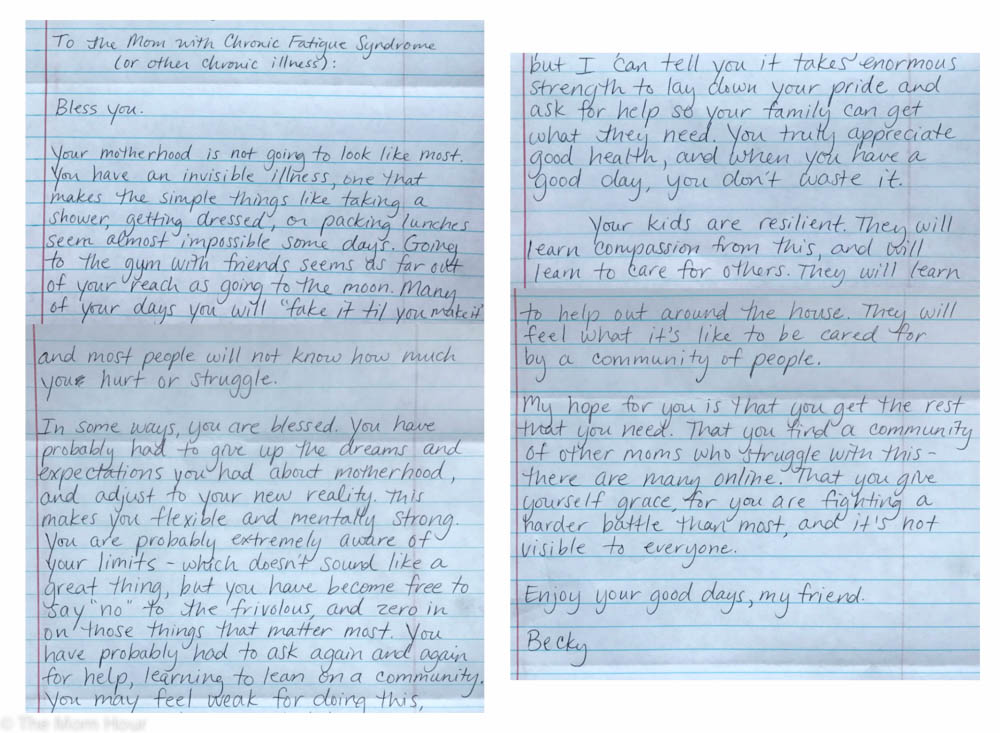 To the Mom with Chronic Fatigue Syndrome
(or other chronic illness):
Bless you.
Your motherhood is not going to look like most.
You have an invisible illness, one that
makes the simple things like taking a
shower, getting dressed, or packing lunches
seem almost impossible some days. Going
to the gym with friends seems as far out
of your reach as going to the moon. Many
of your days you will "fake it til you make it"
and most people will not know how much
you hurt or struggle.
In some ways, you are blessed. You have
probably had to give up the dreams and
expectations you had about motherhood,
and adjust to your new reality. This
makes you flexible and mentally strong.
You are probably extremely aware of
your limits - which doesn't sound like a
great thing, but you have become free to
say "no" to the frivolous, and zero in
on those things that matter most. You
have probably had to ask again and again
for help, learning to lean on a community.
You may feel weak for doing this,
but I can tell you it takes enormous
strength to lay down your pride and
ask for help so your family can get
what they need. You truly appreciate
good health, and when you have a
good day, you don't waste it.
Your kids are resilient. They will
learn compassion from this, and will
learn to care for others. They will learn
to help out around the house. They will
feel what it's like to be cared for
by a community of people.
My hope for you is that you get the rest
that you need. That you find a community
of other moms who struggle with this -
there are many online. That you give
yourself grace, for you are fighting a
harder battle than most, and it's not
visible to everyone.
Enjoy your good days, my friend.
Becky
© The Mom Hour